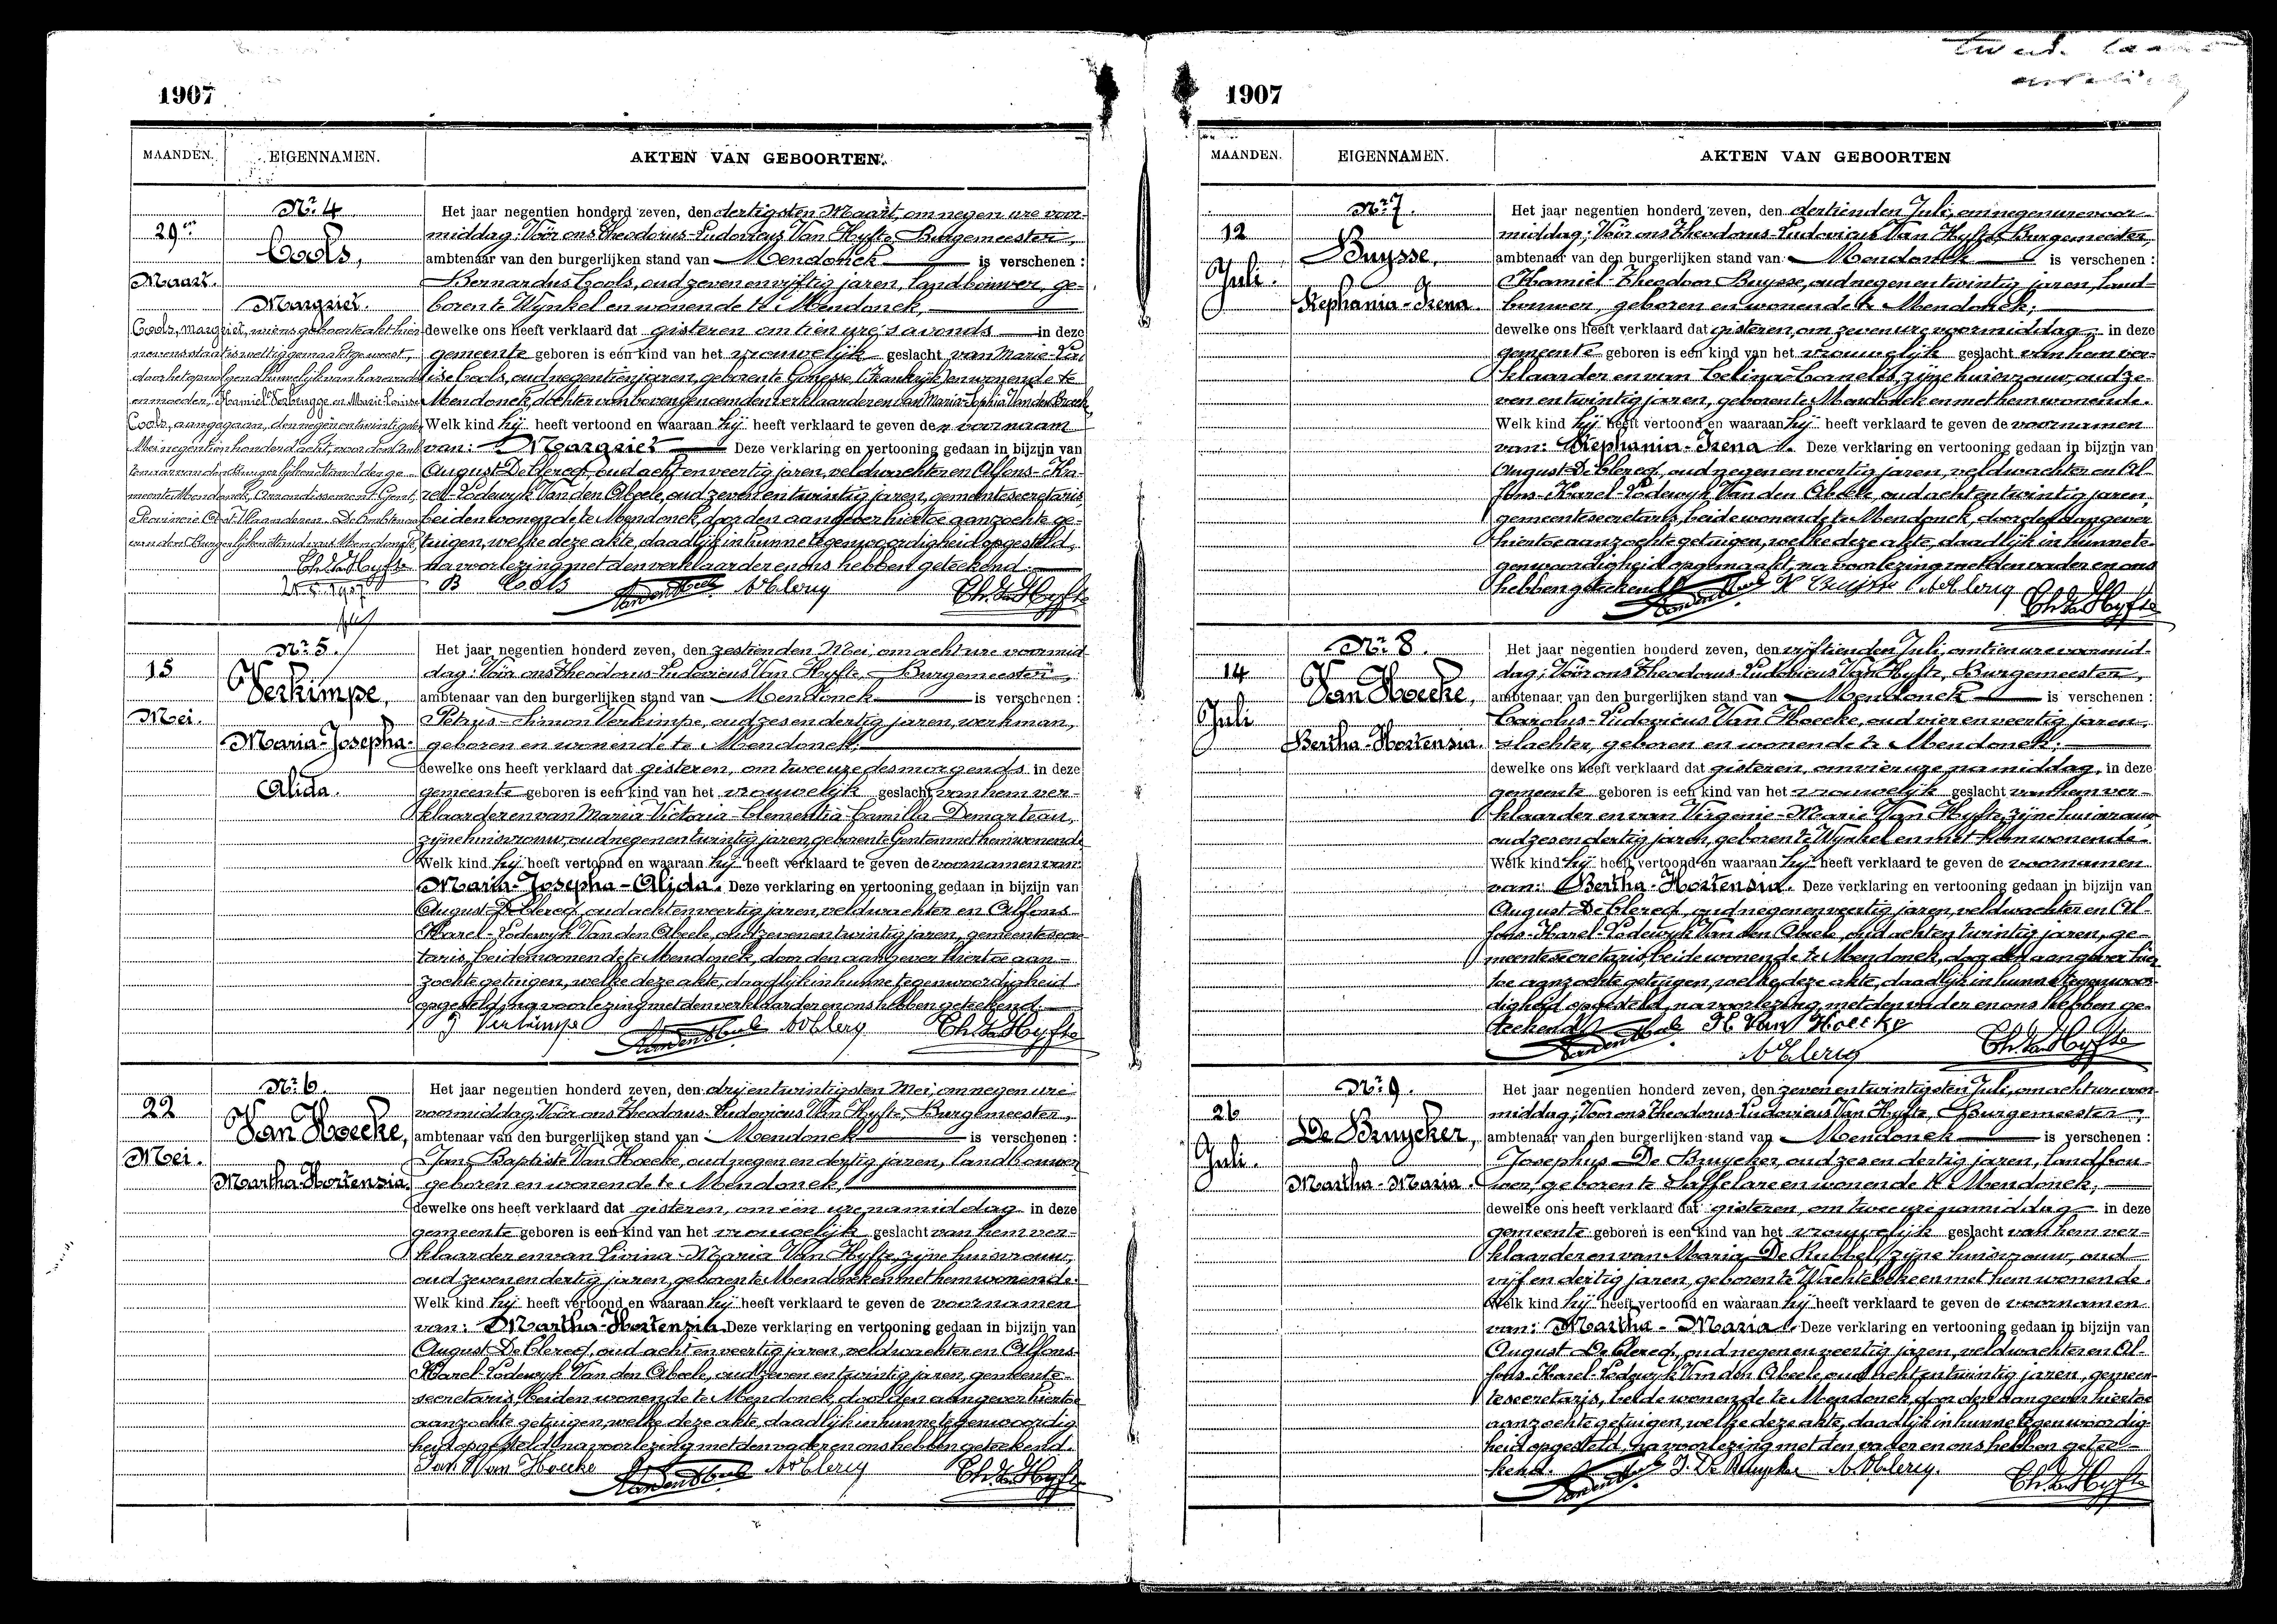 1907
MAANDEN. EIGENNAMEN. AKTEN VAN GEBOORTEN.
Nr. 4
29en
Maart.
Cools,
Margriet.
Cools, Margriet, wiens geboorteakt hier
nevens staat is wettig gemaakt geweest,
door het opvolgend huwelijk van haar vader
en moeder, Kamiel Verbrugge en Marie-Louise
Cools, aangegaan, den negen en twintigsten
Mei negentien honderd acht, voor den Amb-
tenaar van den burgerlijken Stand der ge-
meente Mendonck, Arrondissement Gent,
Provincie Oost-Vlaanderen. De Ambtenaar
van den Burgerlijken Stand van Mendonck,
Th. Van Hyfte
Het jaar negentien honderd zeven, den dertigsten Maart, om negen ure voor-
middag; Vóór ons Theodorus-Ludovicus Van Hyfte, Burgemeester,
ambtenaar van den burgerlijken stand van Mendonck is verschenen:
Bernardus Cools, oud zeven en vijftig jaren, landbouwer, ge-
boren te Wynkel en wonende te Mendonck,
dewelke ons heeft verklaard dat gisteren om tien ure 's avonds in deze
gemeente geboren is een kind van het vrouwelijk geslacht van Marie-Lou-
ise Cools, oud negentien jaren, geboren te Gonesse (Frankrijk) en wonende te
Mendonck, dochter van bovengenoemden verklaarder en van Maria-Sophia Van den Broeck
Welk kind hij heeft vertoond en waaraan hij heeft verklaard te geven den voornaam
van: Margriet Deze verklaring en vertooning gedaan in bijzijn van
August De Clercq, oud acht en veertig jaren, veldwachter en Alfons-Ka-
rel-Lodewyk Van den Abeele, oud zeven en twintig jaren, gemeentesecretaris,
beiden wonende te Mendonck, door den aangever hiertoe aanzochte ge-
tuigen, welke deze akte, daadlijk in hunne tegenwoordigheid opgesteld,
na voorlezing met den verklaarder en ons hebben geteekend.
B Cools ADClercq Th. Van Hyfte
Nr. 5.
15
Mei.
Verkimpe,
Maria-Josepha-
Alida.
Het jaar negentien honderd zeven, den zestienden Mei, om acht ure voormid-
dag; Vóór ons Theodorus-Ludovicus Van Hyfte, Burgemeester,
ambtenaar van den burgerlijken stand van Mendonck is verschenen:
Petrus-Simon Verkimpe, oud zes en dertig jaren, werkman,
geboren en wonende te Mendonck;
dewelke ons heeft verklaard dat gisteren, om twee ure des morgends in deze
gemeente geboren is een kind van het vrouwelijk geslacht van hem ver-
klaarder en van Maria-Victoria-Clementia-Camilla Demarteau,
zijne huisvrouw, oud negen en twintig jaren, geboren te Gent en met hem wonende
Welk kind hij heeft vertoond en waaraan hij heeft verklaard te geven de voornamen van:
Maria-Josepha-Alida. Deze verklaring en vertooning gedaan in bijzijn van
August De Clercq, oud acht en veertig jaren, veldwachter en Alfons-
Karel-Lodewyk Van den Abeele, oud zeven en twintig jaren, gemeentesecre-
taris, beiden wonende te Mendonck, door den aangever hiertoe aan-
zochte getuigen, welke deze akte, daadlijk in hunne tegenwoordigheid
opgesteld, na voorlezing met den verklaarder en ons hebben geteekend.
Verkimpe ADClercq Th. Van Hyfte
Nr. 6.
22
Mei.
Van Hoecke,
Martha-Hortensia.
Het jaar negentien honderd zeven, den drij en twintigsten Mei, om negen ure
voormiddag; Vóór ons Theodorus-Ludovicus Van Hyfte, Burgemeester,
ambtenaar van den burgerlijken stand van Mendonck is verschenen:
Jan Baptiste Van Hoecke, oud negen en dertig jaren, landbouwer
geboren en wonende te Mendonck,
dewelke ons heeft verklaard dat gisteren, om één ure namiddag in deze
gemeente geboren is een kind van het vrouwelijk geslacht van hem ver-
klaarder en van Livina-Maria Van Hyfte, zijne huisvrouw,
oud zeven en dertig jaren, geboren te Mendonck en met hem wonende.
Welk kind hij heeft vertoond en waaraan hij heeft verklaard te geven de voornamen
van: Martha-Hortensia. Deze verklaring en vertooning gedaan in bijzijn van
August De Clercq, oud acht en veertig jaren, veldwachter en Alfons-
Karel-Lodewyk Van den Abeele, oud zeven en twintig jaren, gemeente-
secretaris, beiden wonende te Mendonck, door den aangever hiertoe
aanzochte getuigen, welke deze akte, daadlijk in hunne tegenwoordig-
heid opgesteld, na voorlezing met den vader en ons hebben geteekend.
Jan Van Hoecke ADClercq Th. Van Hyfte
1907
MAANDEN. EIGENNAMEN. AKTEN VAN GEBOORTEN
Nr. 7.
12
Juli.
Buysse,
Stephania-Irena.
Het jaar negentien honderd zeven, den dertienden Juli, om negen ure voor-
middag; Vóór ons Theodorus-Ludovicus Van Hyfte, Burgemeester,
ambtenaar van den burgerlijken stand van Mendonck is verschenen:
Kamiel-Theodoor Buysse, oud negen en twintig jaren, land-
bouwer, geboren en wonende te Mendonck;
dewelke ons heeft verklaard dat gisteren, om zeven ure voormiddag, in deze
gemeente geboren is een kind van het vrouwelijk geslacht van hem ver-
klaarder en van Celina Cornelis, zijne huisvrouw, oud ze-
ven en twintig jaren, geboren te Mendonck en met hem wonende.
Welk kind hij heeft vertoond en waaraan hij heeft verklaard te geven de voornamen
van: Stephania-Irena. Deze verklaring en vertooning gedaan in bijzijn van
August De Clercq, oud negen en veertig jaren, veldwachter en Al-
fons-Karel-Lodewyk Van den Abeele, oud acht en twintig jaren,
gemeentesecretaris, beide wonende te Mendonck, door den aangever
hiertoe aanzochte getuigen, welke deze akte, daadlijk in hunne te-
genwoordigheid opgemaakt, na voorlezing met den vader en ons
hebben geteekend. K Buysse ADClercq Th. Van Hyfte
Nr. 8.
14
Juli
Van Hoecke,
Bertha-Hortensia.
Het jaar negentien honderd zeven, den vijftienden Juli, om tien ure voormid-
dag; Vóór ons Theodorus-Ludovicus Van Hyfte, Burgemeester,
ambtenaar van den burgerlijken stand van Mendonck is verschenen:
Carolus-Ludovicus Van Hoecke, oud vier en veertig jaren,
slachter, geboren en wonende te Mendonck;
dewelke ons heeft verklaard dat gisteren, om vier ure namiddag, in deze
gemeente geboren is een kind van het vrouwelijk geslacht van hem ver-
klaarder en van Virgenie-Marie Van Hyfte, zijne huisvrouw
oud zes en dertig jaren, geboren te Wynkel en met hem wonende.
Welk kind hij heeft vertoond en waaraan hij heeft verklaard te geven de voornamen
van: Bertha-Hortensia. Deze verklaring en vertooning gedaan in bijzijn van
August De Clercq, oud negen en veertig jaren, veldwachter en Al-
fons-Karel-Lodewyk Van den Abeele, oud acht en twintig jaren, ge-
meentesecretaris, beide wonende te Mendonck, door den aangever hier-
toe aanzochte getuigen, welke deze akte, daadlijk in hunne tegenwoor-
digheid opgesteld, na voorlezing, met den vader en ons hebben ge-
teekend. K. Van Hoecke
ADClercq Th. Van Hyfte
Nr. 9.
26
Juli.
De Bruycker,
Martha-Maria.
Het jaar negentien honderd zeven, den zeven en twintigsten Juli, om acht ure voor-
middag; Vóór ons Theodorus-Ludovicus Van Hyfte, Burgemeester,
ambtenaar van den burgerlijken stand van Mendonck is verschenen:
Josephus De Bruycker, oud zes en dertig jaren, landbou-
wer, geboren te Saffelare en wonende te Mendonck;
dewelke ons heeft verklaard dat gisteren, om twee ure namiddag in deze
gemeente geboren is een kind van het vrouwelijk geslacht van hem ver-
klaarder en van Maria De Kubbel, zijne huisvrouw, oud
vijf en dertig jaren, geboren te Wachtebeke en met hem wonende.
Welk kind hij heeft vertoond en waaraan hij heeft verklaard te geven de voornamen
van: Martha-Maria. Deze verklaring en vertooning gedaan in bijzijn van
August De Clercq, oud negen en veertig jaren, veldwachter en Al-
fons-Karel-Lodewyk Van den Abeele, oud acht en twintig jaren, gemeen-
tesecretaris, beide wonende te Mendonck, door den aangever hiertoe
aanzochte getuigen, welke deze akte, daadlijk in hunne tegenwoordig-
heid opgesteld, na voorlezing met den vader en ons hebben getee-
kend. J. De Bruycker ADClercq. Th. Van Hyfte